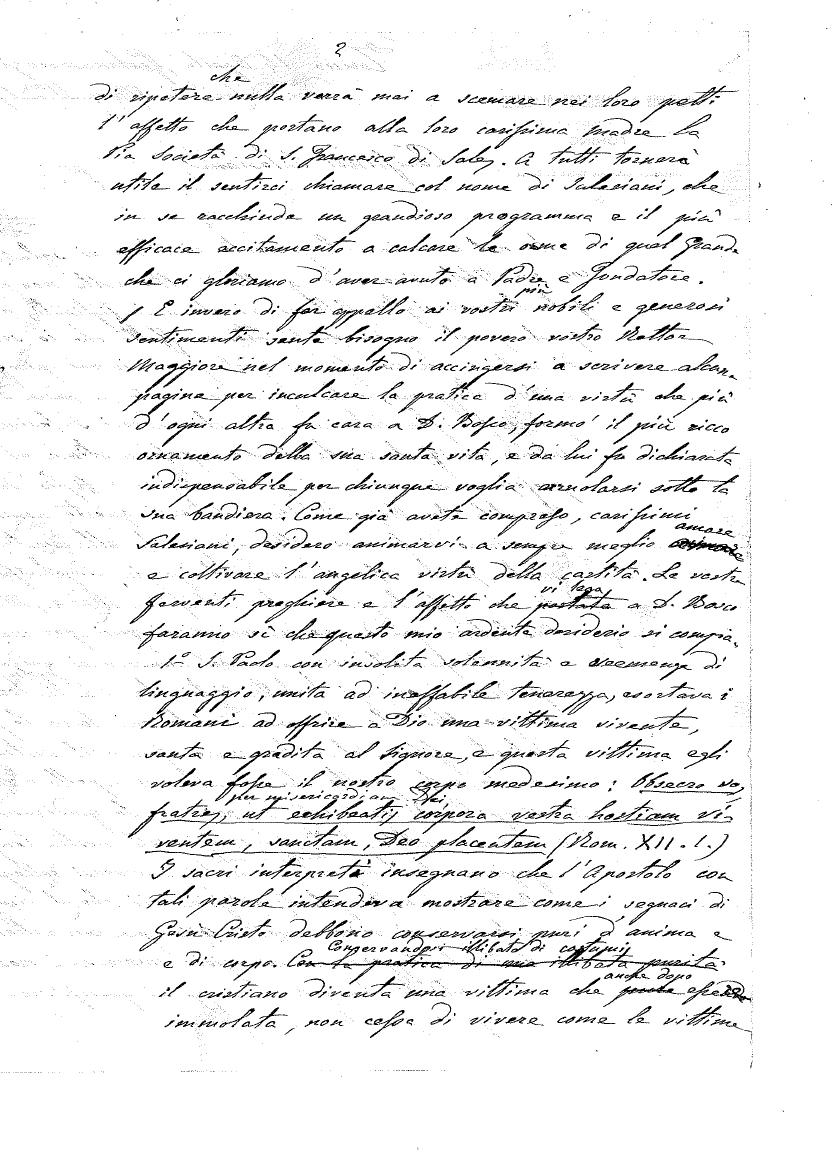 2
che
di ripetere nulla verrà mai a scemare nei loro petti
l'affetto che portano alla loro carissima madre la
Pia Società di S. Francesco di Sales. A tutti tornerà
utile il sentirci chiamare col nome di Salesiani, che
in se racchiude un grandioso programma e il più
efficace eccitamento a calcare le orme di quel Grande
che ci gloriamo d'aver avuto a Padre e Fondatore.
più
E invero di far appello ai vostri nobili e generosi
sentimenti sente bisogno il povero vostro Rettor
Maggiore nel momento di accingersi a scrivere alcune
pagine per inculcare la pratica d'una virtù che più
d'ogni altra fu cara a D. Bosco, formò il più ricco
ornamento della sua santa vita, e da lui fu dichiarata
indispensabile per chiunque voglia arruolarsi sotto la
sua bandiera. Come già avete compreso, carissimi
amare
Salesiani, desidero animarvi a sempre meglio
e coltivare l'angelica virtù della castità. Le vostre
vi lega
ferventi preghiere e l'affetto che portate a D. Bosco
faranno sì che questo mio ardente desiderio si compia.
1.º S. Paolo con insolita solennità e veemenza di
linguaggio, unita ad ineffabile tenerezza, esortava i
Romani ad offrire a Dio una vittima vivente,
santa e gradita al Signore, e questa vittima egli
voleva fosse il nostro corpo medesimo: Obsecro vos,
per misericordiam Dei,
fratres, ut exhibeatis corpora vestra hostiam vi-
ventem, sanctam, Deo placentem (Rom. XII. 1.)
I sacri interpreti insegnano che l'Apostolo con
tali parole intendeva mostrare come i segnaci di
Gesù Cristo debbono conservarsi puri d'anima e
Conservandosi illibato di costumi
e di corpo. Con la pratica di una illibata purità
anche dopo
il cristiano diventa una vittima che essere
immolata, non cessa di vivere come le vittime